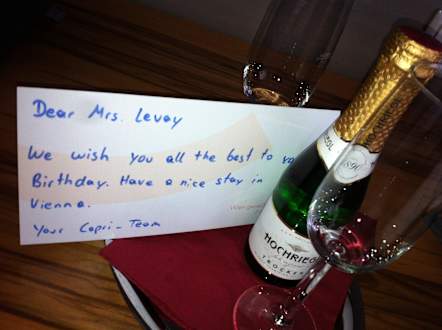 Dear Mrs. Levay
We wish you all the best to
Birthday. Have a nice stay in
Vienna.
Your Capri-Team
1890
HOCHRIEGL
TROCKEN